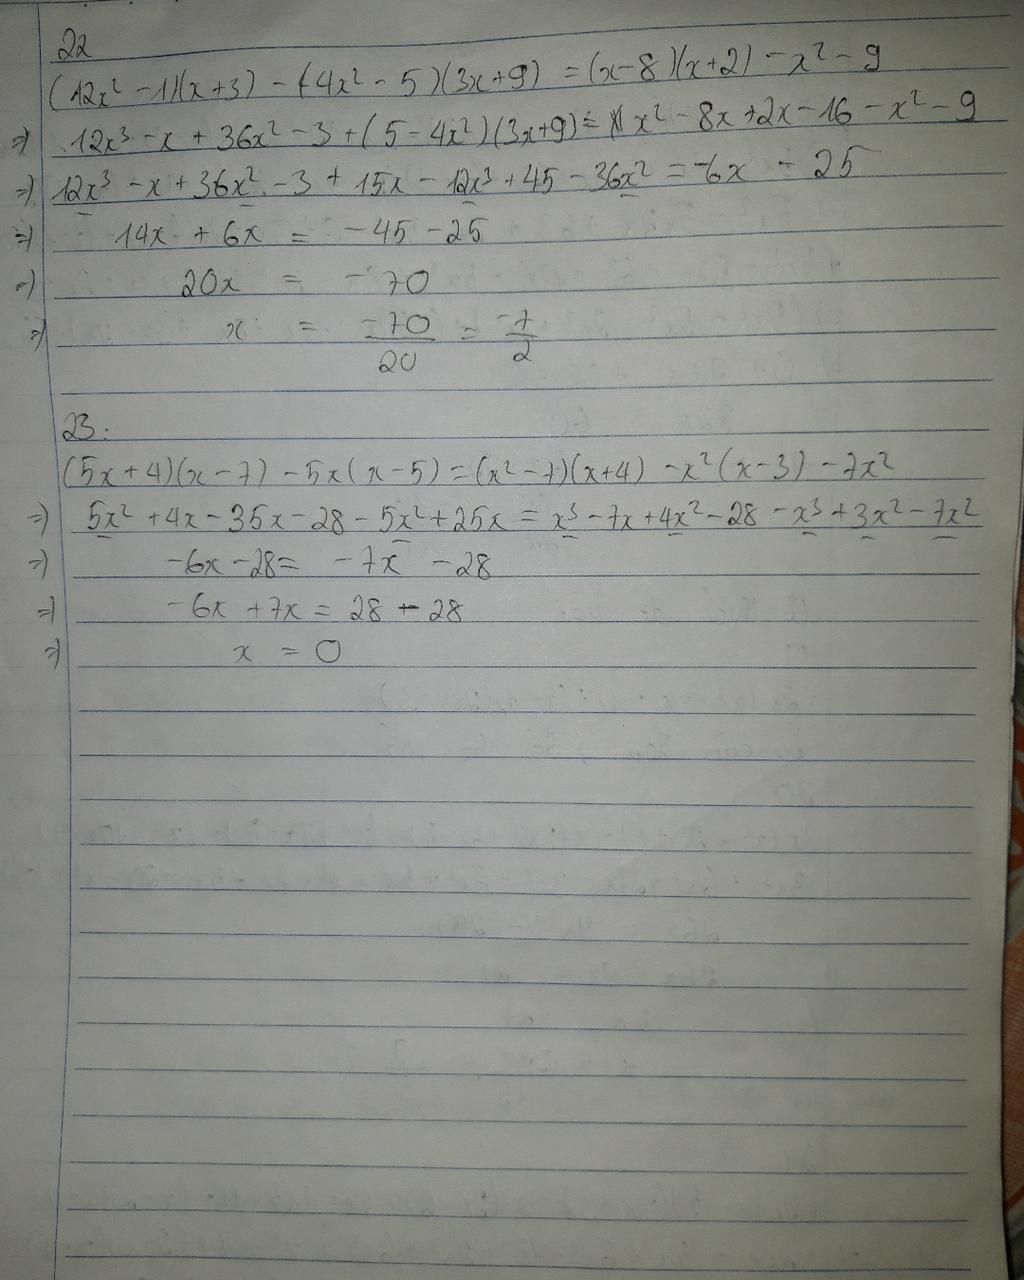 22
(12x² - 1)(x + 3) - (4x² - 5)(3x + 9) = (x - 8)(x + 2) - x² - 9
=> 12x³ - x + 36x² - 3 + (5 - 4x²)(3x + 9) = x² - 8x + 2x - 16 - x² - 9
=> 12x³ - x + 36x² - 3 + 15x - 12x³ + 45 - 36x² = -6x - 25
=> 14x + 6x = -45 - 25
=> 20x = -70
=> x = -70/20 = -7/2
23:
(5x + 4)(x - 7) - 5x(x - 5) = (x² - 7)(x + 4) - x²(x - 3) - 7x²
=> 5x² + 4x - 35x - 28 - 5x² + 25x = x³ - 7x + 4x² - 28 - x³ + 3x² - 7x²
=> -6x - 28 = -7x - 28
=> -6x + 7x = 28 - 28
=> x = 0